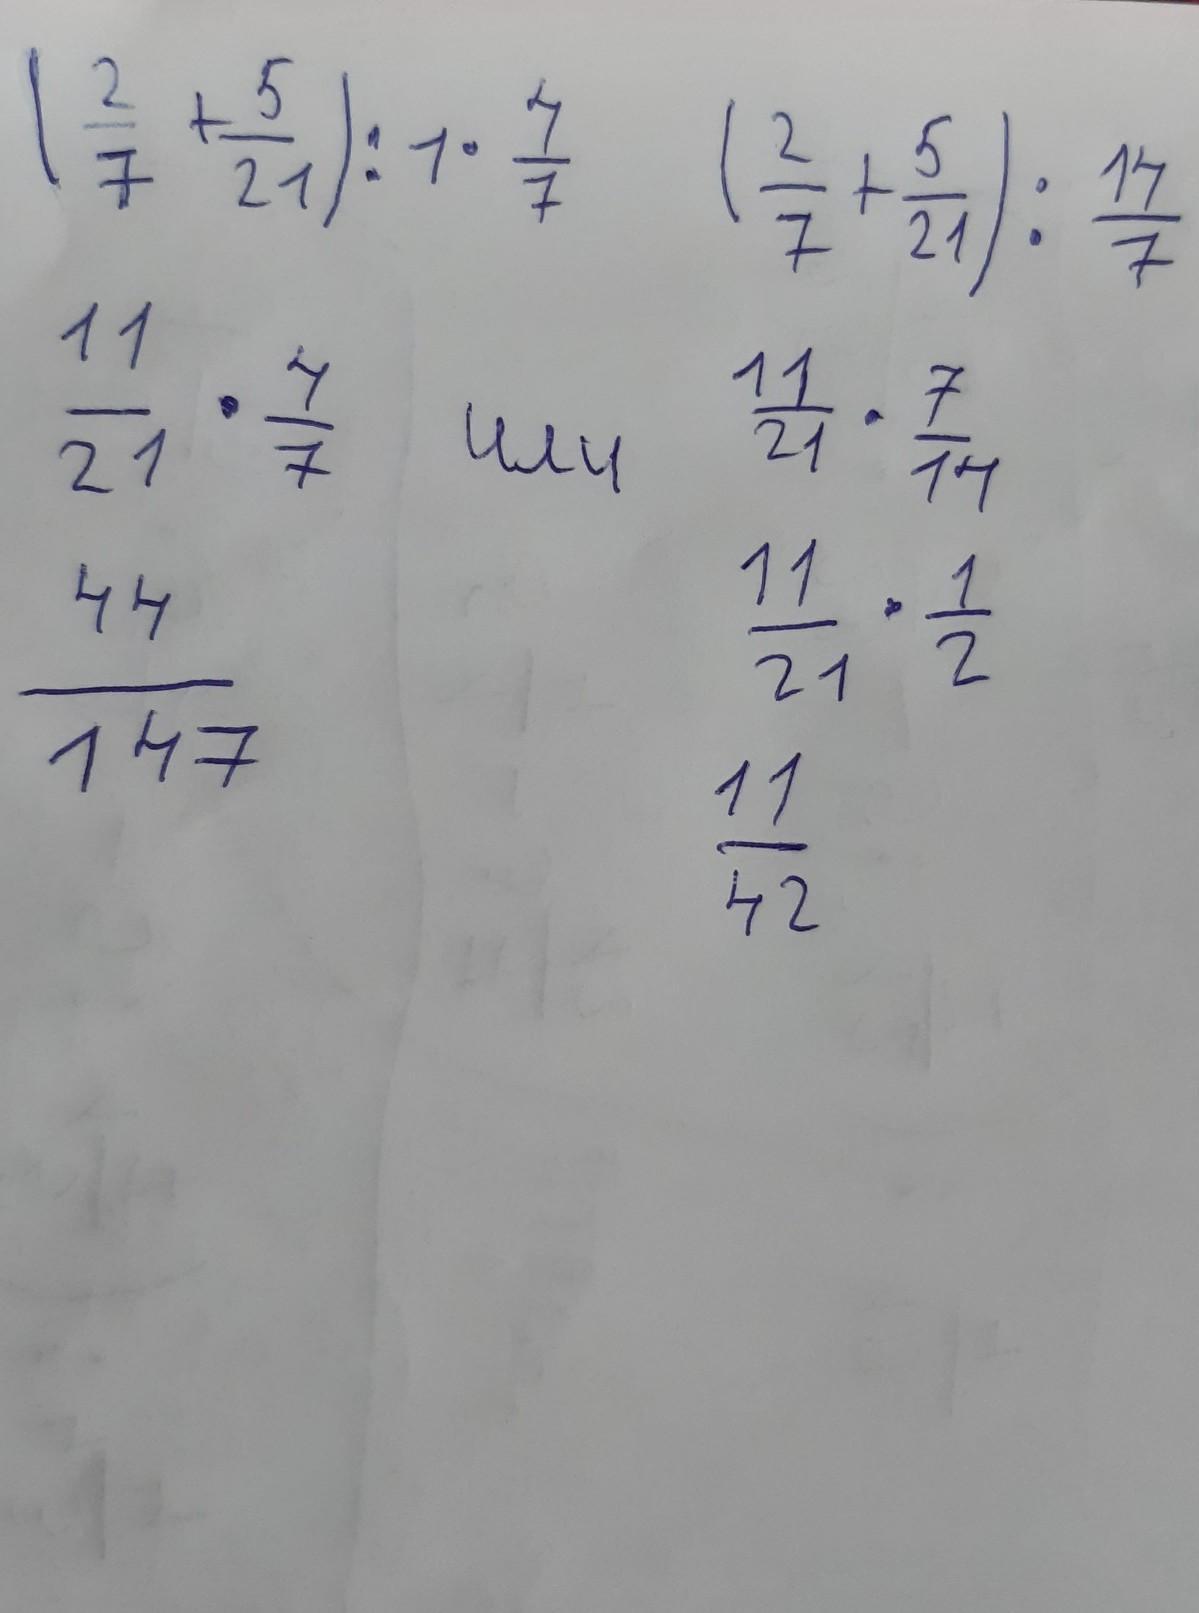 (2/7 + 5/21) : 1 · 4/7
11/21 · 4/7
44/147
или
(2/7 + 5/21) : 14/7
11/21 · 7/14
11/21 · 1/2
11/42